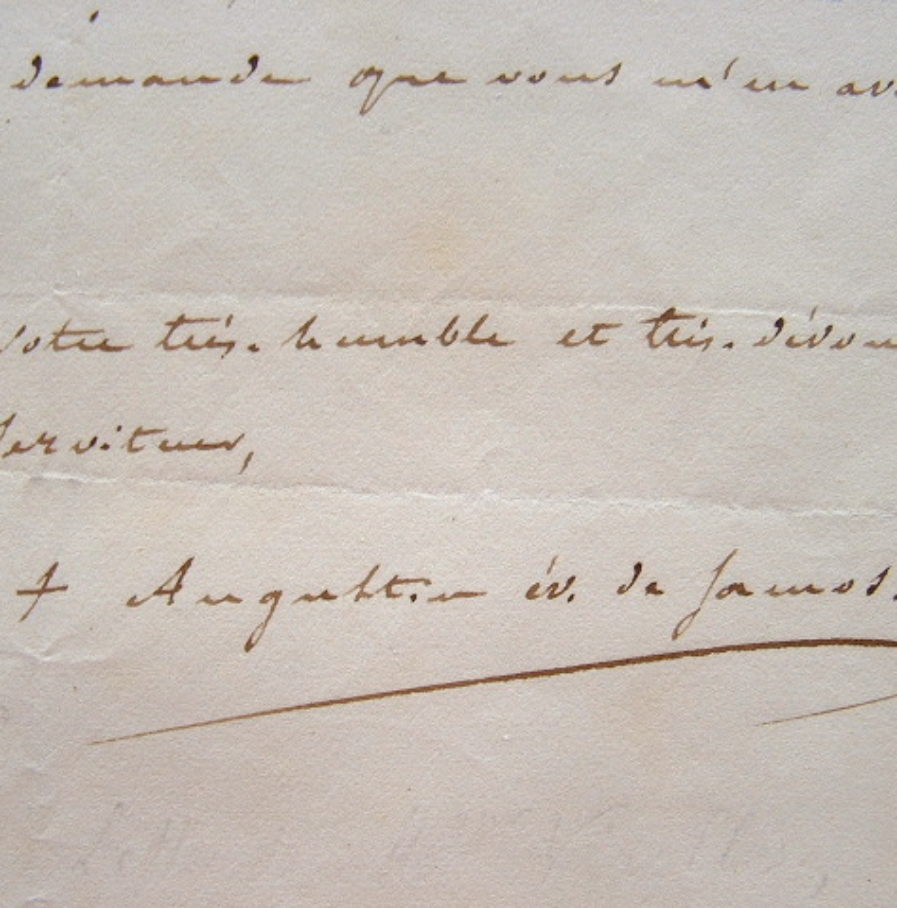 demande que vous m'en av
votre très-humble et très-dévou
Servituer,
+ Augustin év. de Samos.